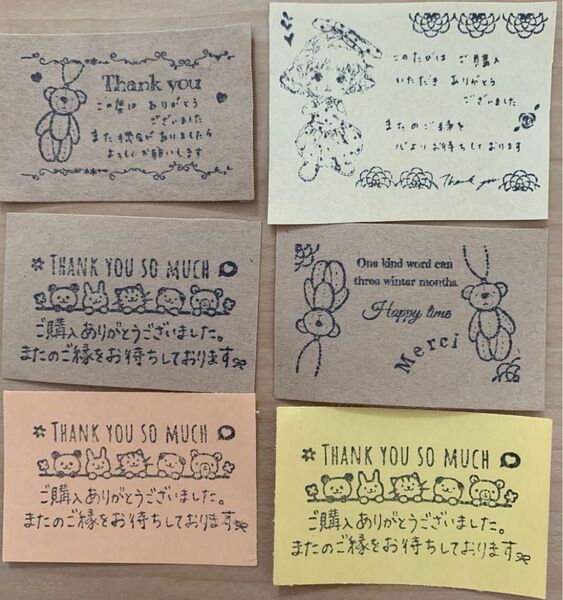 Thank you
この度は ありがとう
ございました
また機会がありましたら
よろしくお願いします
このたびは ご購入
いただき ありがとう
ございました
またのご縁を
心よりお待ちしております
Thank you
THANK YOU SO MUCH
ご購入ありがとうございました。
またのご縁をお待ちしております
One kind word can
three winter months.
Happy time
Merci
THANK YOU SO MUCH
ご購入ありがとうございました。
またのご縁をお待ちしております
THANK YOU SO MUCH
ご購入ありがとうございました。
またのご縁をお待ちしております